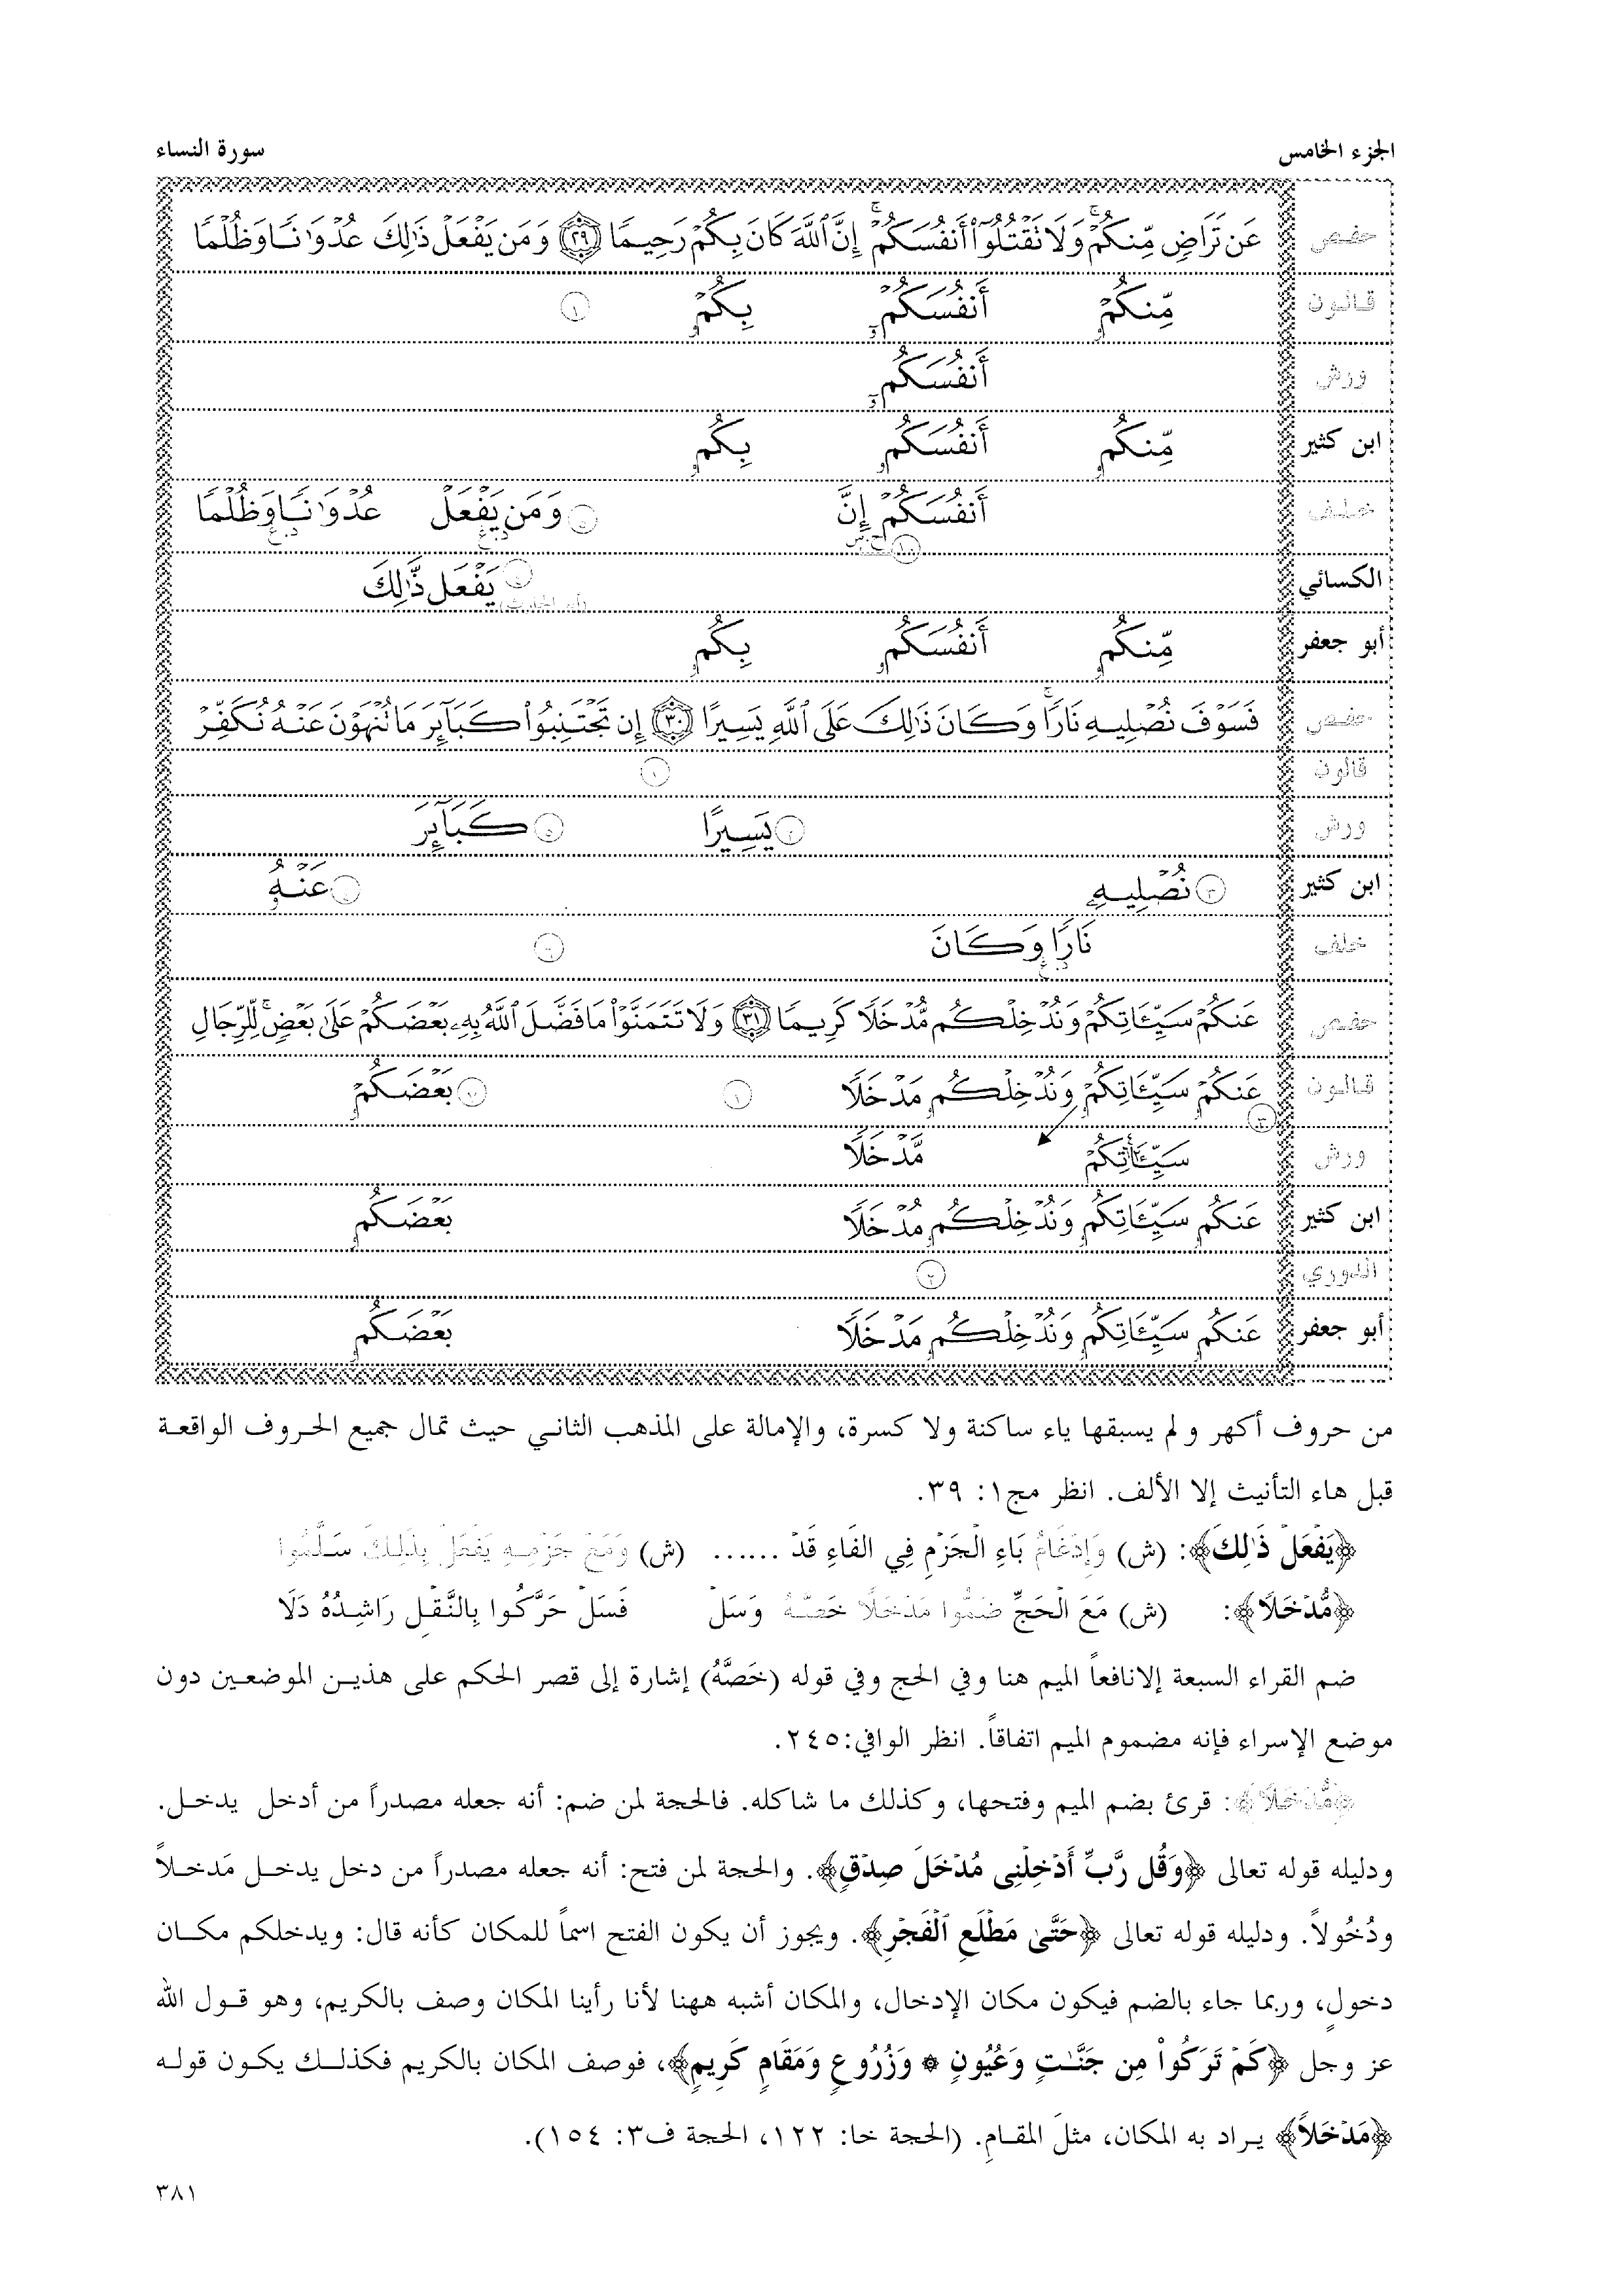 الجزء الخامس
سورة النساء
حفص عَن تَرَاضٍ مِّنكُمْ ۚ وَلَا تَقْتُلُوٓا۟ أَنفُسَكُمْ ۚ إِنَّ ٱللَّهَ كَانَ بِكُمْ رَحِيمًا ﴿٢٩﴾ وَمَن يَفْعَلْ ذَٰلِكَ عُدْوَٰنًا وَظُلْمًا
قالون مِّنكُمْ أَنفُسَكُمْ بِكُمْ ١
ورش أَنفُسَكُم
ابن كثير مِّنكُم أَنفُسَكُم بِكُم
خلف أَنفُسَكُمْ إِنَّ وَمَن يَفْعَلْ عُدْوَٰنًا وَظُلْمًا
الكسائي يَفْعَل ذَّٰلِكَ
أبو جعفر مِّنكُم أَنفُسَكُم بِكُم
حفص فَسَوْفَ نُصْلِيهِ نَارًا ۚ وَكَانَ ذَٰلِكَ عَلَى ٱللَّهِ يَسِيرًا ﴿٣٠﴾ إِن تَجْتَنِبُوا۟ كَبَآئِرَ مَا تُنْهَوْنَ عَنْهُ نُكَفِّرْ
قالون ١
ورش يَسِيرًا كَبَآئِرَ
ابن كثير نُصْلِيهِ عَنْهُ
خلف نَارًا وَكَانَ
حفص عَنكُمْ سَيِّـَٔاتِكُمْ وَنُدْخِلْكُم مُّدْخَلًا كَرِيمًا ﴿٣١﴾ وَلَا تَتَمَنَّوْا۟ مَا فَضَّلَ ٱللَّهُ بِهِۦ بَعْضَكُمْ عَلَىٰ بَعْضٍ ۚ لِّلرِّجَالِ
قالون عَنكُمْ سَيِّـَٔاتِكُمْ وَنُدْخِلْكُم مَدْخَلًا ١ بَعْضَكُمْ
ورش سَيِّـَٔاتِكُمْ مَّدْخَلًا
ابن كثير عَنكُم سَيِّـَٔاتِكُم وَنُدْخِلْكُم مُدْخَلًا بَعْضَكُم
الدوري ٢
أبو جعفر عَنكُم سَيِّـَٔاتِكُم وَنُدْخِلْكُم مَدْخَلًا بَعْضَكُم
من حروف أكهر ولم يسبقها ياء ساكنة ولا كسرة، والإمالة على المذهب الثاني حيث تمال جميع الحروف الواقعة
قبل هاء التأنيث إلا الألف. انظر مج١: ٣٩.
﴿يَفْعَلْ ذَٰلِكَ﴾: (ش) وَإِدْغَامُ بَاءِ الْجَزْمِ فِي الفَاءِ قَدْ ...... (ش) وَمَعْ جَزْمِهِ يَفْعَلْ بِذَلِكَ سَلَّمُوا
﴿مُّدْخَلًا﴾: (ش) مَعَ الْحَجِّ ضَمُّوا مَدْخَلًا خَصَّهُ وَسَلْ فَسَلْ حَرَّكُوا بِالنَّقْلِ رَاشِدُهُ دَلَا
ضم القراء السبعة إلانافعاً الميم هنا وفي الحج وفي قوله (خَصَّهُ) إشارة إلى قصر الحكم على هذين الموضعين دون
موضع الإسراء فإنه مضموم الميم اتفاقاً. انظر الوافي:٢٤٥.
﴿مُّدْخَلًا﴾: قرئ بضم الميم وفتحها، وكذلك ما شاكله. فالحجة لمن ضم: أنه جعله مصدراً من أدخل يدخل.
ودليله قوله تعالى ﴿وَقُل رَّبِّ أَدْخِلْنِى مُدْخَلَ صِدْقٍ﴾. والحجة لمن فتح: أنه جعله مصدراً من دخل يدخل مَدخلاً
ودُخُولاً. ودليله قوله تعالى ﴿حَتَّىٰ مَطْلَعِ ٱلْفَجْرِ﴾. ويجوز أن يكون الفتح اسماً للمكان كأنه قال: ويدخلكم مكان
دخولٍ، وربما جاء بالضم فيكون مكان الإدخال، والمكان أشبه ههنا لأنا رأينا المكان وصف بالكريم، وهو قول الله
عز وجل ﴿كَمْ تَرَكُوا۟ مِن جَنَّـٰتٍ وَعُيُونٍ * وَزُرُوعٍ وَمَقَامٍ كَرِيمٍ﴾، فوصف المكان بالكريم فكذلك يكون قوله
﴿مَدْخَلاً﴾ يراد به المكان، مثلَ المقامِ. (الحجة خا: ١٢٢، الحجة ف٣: ١٥٤).
٣٨١